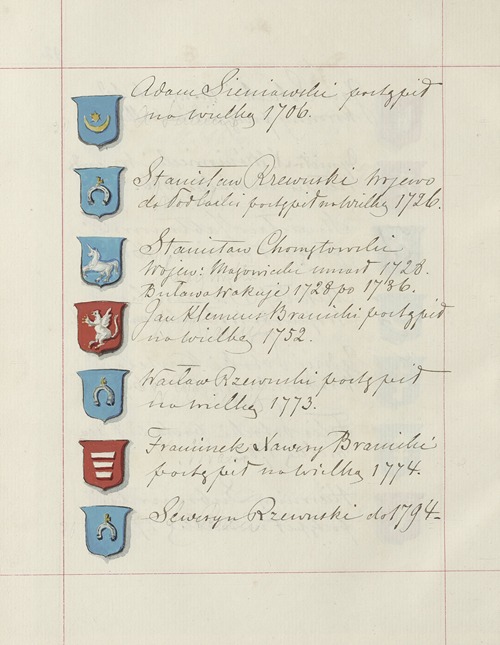 Adam Sieniawski postąpił
na wielką 1706.
Stanisław Rzewuski Wojewo
da Podlaski postąpił na wielką 1726.
Stanisław Chomętowski
Wojew: Mazowiecki umarł 1728.
Buława wakuje 1728 po 1736.
Jan Klemens Branicki postąpił
na wielką 1752.
Wacław Rzewuski postąpił
na wielką 1773.
Franciszek Xawery Branicki
postąpił na wielką 1774.
Seweryn Rzewuski do 1794-